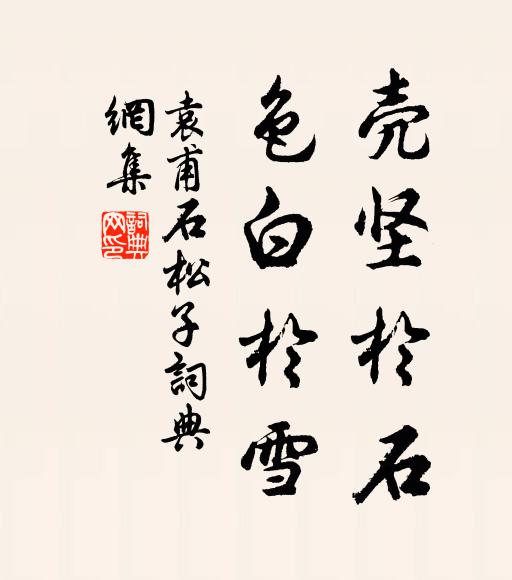 壳坚於石
色白於雪
袁甫石松子詞典
網集
詞典
网印